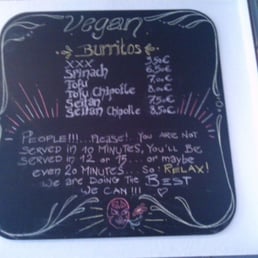 Vegan
Burritos
XXX 5,50€
Spinach 6,50€
Tofu 7,00€
Tofu Chipotle 8,00€
Seitan 7,50€
Seitan Chipotle 8,50€
PEOPLE!!!... Please!. YOU ARE NOT
SERVED IN 10 MINUTES, YOU'LL BE
SERVED IN 12 OR 15... OR maybe
even 20 MINUTES... SO: RELAX!
WE ARE DOING THE BEST
WE CAN!!!